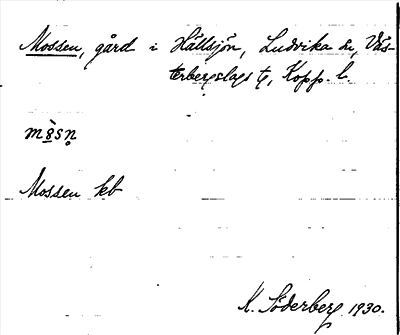 Mossen, gård i Hällsjön, Ludvika sn, Väs-
terbergslags tg, Kopp. l.
mò̱sn̥
Mossen kb
K. Söderberg 1930.